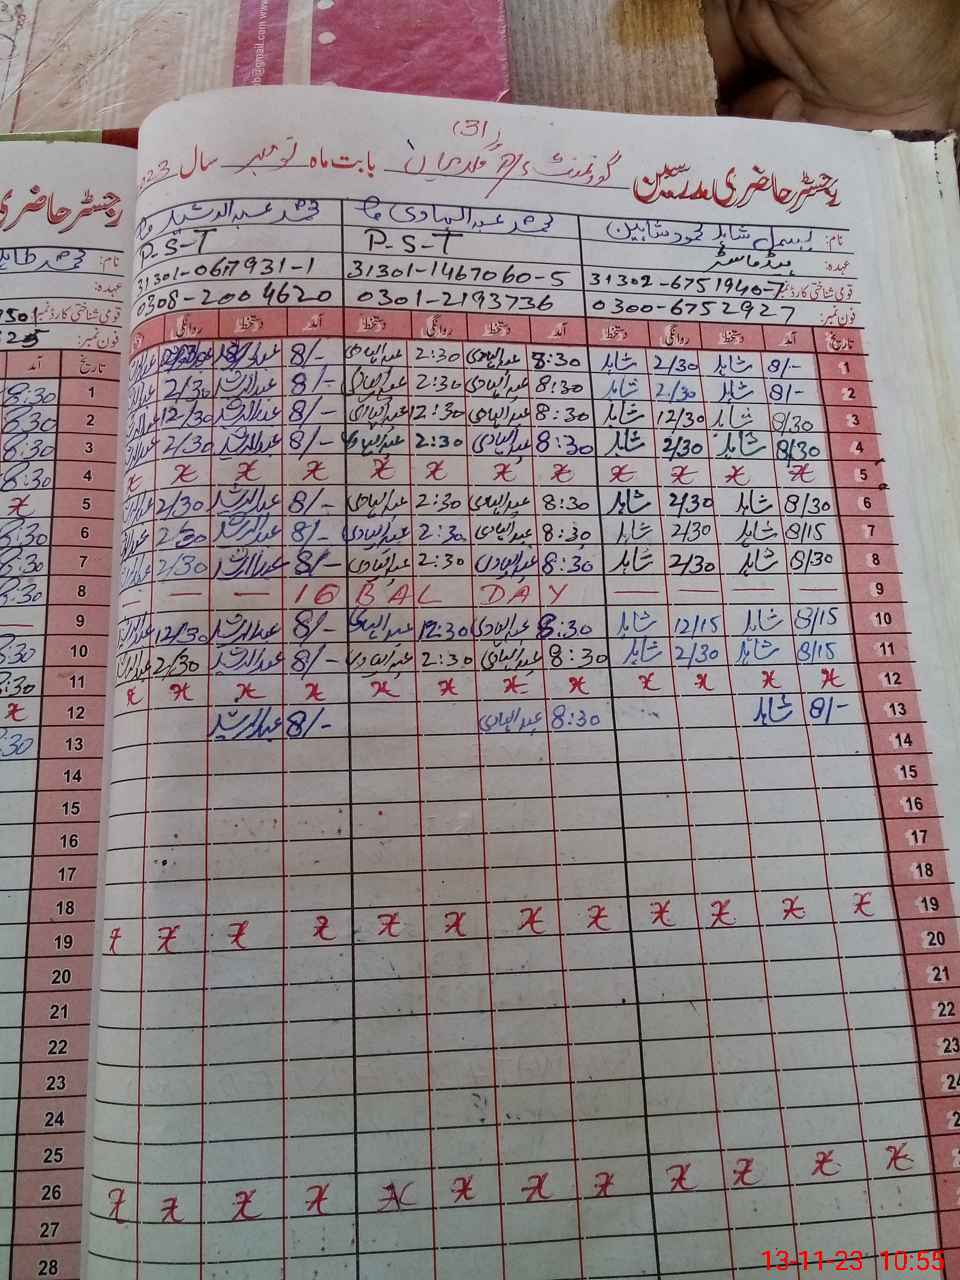 (31)
رجسٹر حاضری مدرسین گورنمنٹ بابت ماہ نومبر سال 2023
نام: شاہد محمود شاہین محمد عبدالہادی محمد عبدالرشید
عہدہ: ہیڈ ماسٹر P-S-T P-S-T
قومی شناختی کارڈ نمبر: 31302-6751940-7 31301-1467060-5 31301-0617931-1
فون نمبر: 0300-6752927 0301-2193736 0308-2004620
تاریخ آمد دستخط روانگی دستخط آمد دستخط روانگی دستخط آمد دستخط روانگی
1 8/- شاہد 2/30 شاہد 8:30 عبدالہادی 2:30 عبدالہادی 8/- عبدالرشید
2 8/- شاہد 2/30 شاہد 8:30 عبدالہادی 2:30 عبدالہادی 8/- عبدالرشید 2/30
3 8/30 شاہد 12/30 شاہد 8:30 عبدالہادی 12:30 عبدالہادی 8/- عبدالرشید 12/30
4 8/30 شاہد 2/30 شاہد 8:30 عبدالہادی 2:30 عبدالہادی 8/- عبدالرشید 2/30
5 x x x x x x x x x x x x x
6 8/30 شاہد 2/30 شاہد 8:30 عبدالہادی 2:30 عبدالہادی 8/- عبدالرشید 2/30
7 8/15 شاہد 2/30 شاہد 8:30 عبدالہادی 2:30 عبدالہادی 8/- عبدالرشید 2/30
8 8/30 شاہد 2/30 شاہد 8:30 عبدالہادی 2:30 عبدالہادی 8/- عبدالرشید 2/30
9 — — — — 16 BAL DAY — — —
10 8/15 شاہد 12/15 شاہد 8:30 عبدالہادی 12:30 عبدالہادی 8/- عبدالرشید 12/30
11 8/15 شاہد 2/30 شاہد 8:30 عبدالہادی 2:30 عبدالہادی 8/- عبدالرشید 2/30
12 x x x x x x x x x x x x
13 8/- شاہد 8:30 عبدالہادی 8/- عبدالرشید
14
15
16
17
18
19 x x x x x x x x x x x x
20
21
22
23
24
رجسٹر حاضری
نام: محمد
عہدہ:
قومی شناختی کارڈ نمبر:
فون نمبر:
تاریخ آمد
1 8:30
2 8:30
3 8:30
4 8:30
5 x
6 8:30
7 8:30
8 8:30
9 —
10 8:30
11 8:30
12 x
13 8:30
14
15
16
17
18
19
20
21
22
23
24
25
26
27
28
@gmail.com
www.
13-11-23 10:55